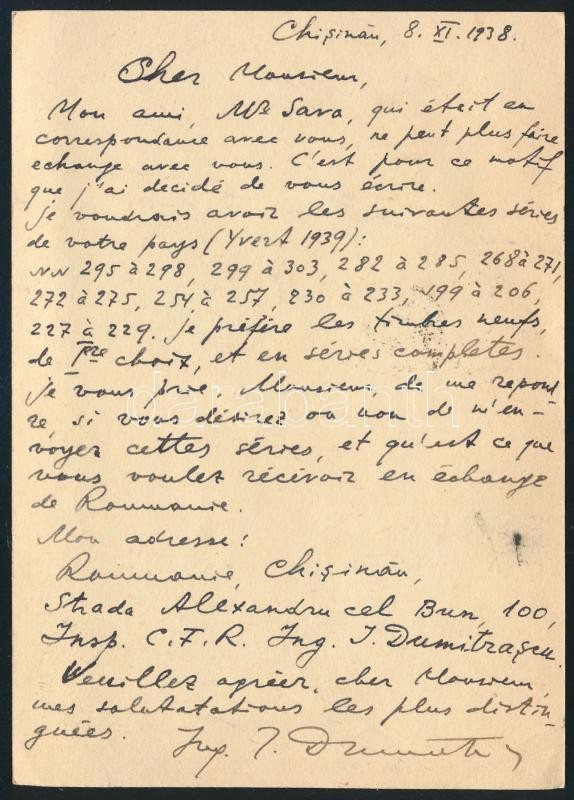 Chişinău, 8. XI. 1938.
Cher Monsieur,
Mon ami, Mr Sava, qui était en
correspondance avec vous, ne peut plus faire
echange avec vous. C'est pour ce motif
que j'ai decidé de vous écrire.
Je voudrais avoir les suivantes séries
de votre pays (Yvert 1939):
NN 295 à 298, 299 à 303, 282 à 285, 268 à 271,
272 à 275, 254 à 257, 230 à 233, 199 à 206,
227 à 229. Je préfère les timbres neufs,
de Ière choix, et en séries completes.
Je vous prie, Monsieur, de me repond-
re si vous désirez ou non de m'en-
voyez cettes séries, et qu'est ce que
vous voulez récévoir en échange
de Roumanie.
Mon adresse:
Roumanie, Chişinău,
Strada Alexandru cel Bun, 100,
Insp. C.F.R. Ing. I. Dumitraşcu.
Veuillez agréer, cher Monsieur,
mes salutatations les plus distin-
guées. Ing. I.
darabanth